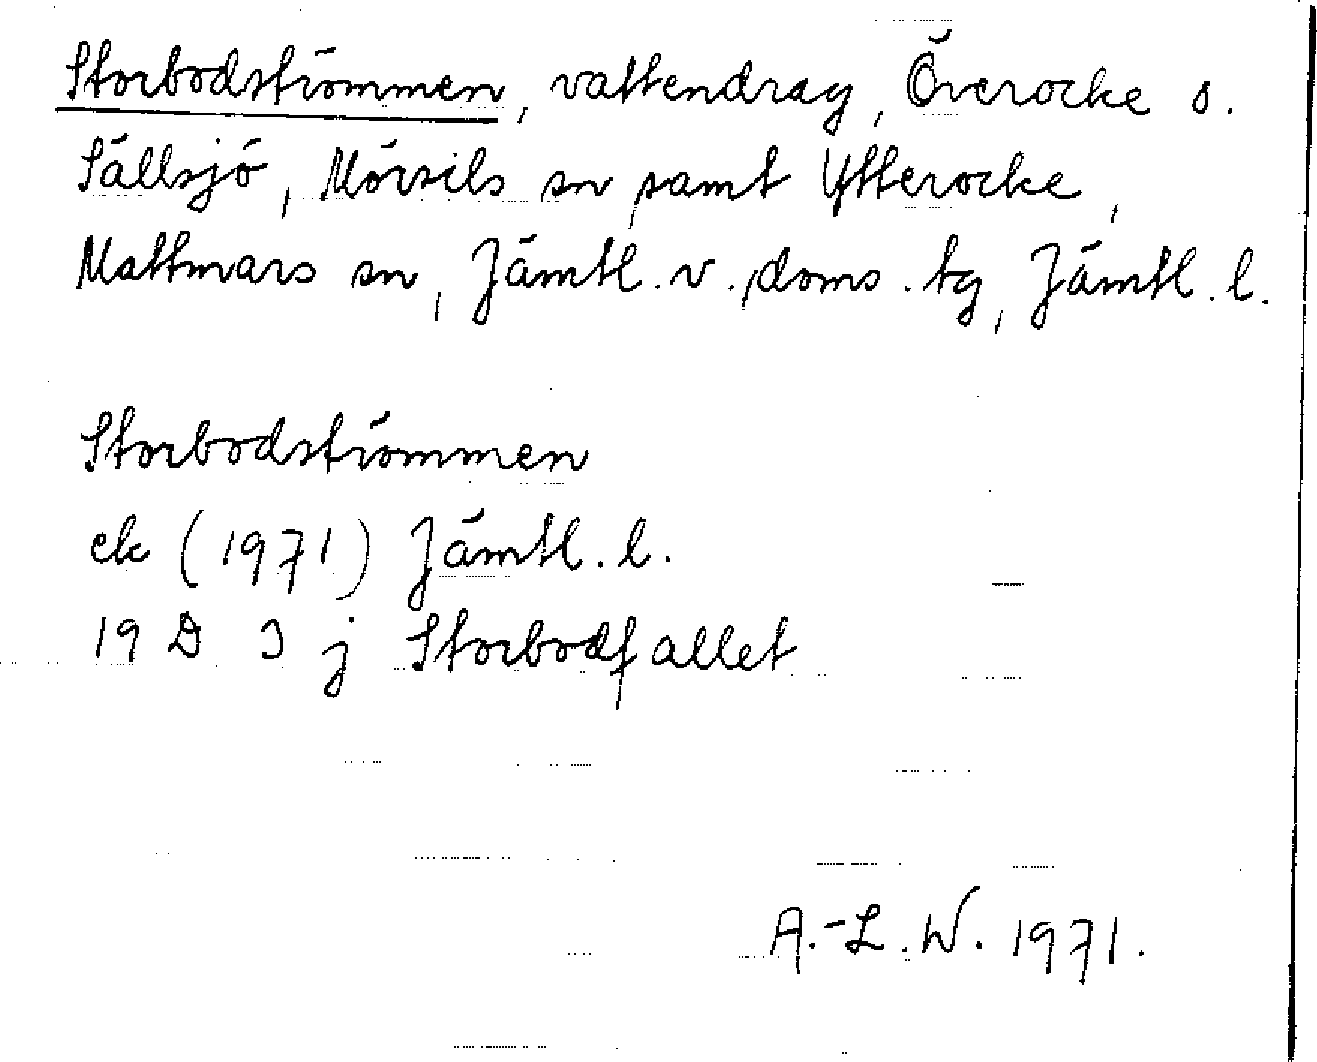 Storbodströmmen, vattendrag, Överocke o.
Sällsjö, Mörsils sn samt Ytterocke,
Mattmars sn, Jämtl. v. doms. tg, Jämtl. l.
Storbodströmmen
ek (1971) Jämtl. l.
19 D 3 j Storbodfallet
A.-L. W. 1971.